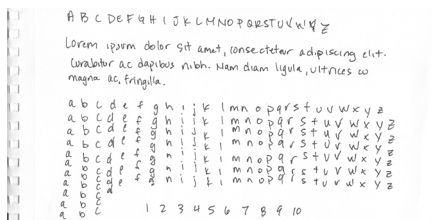 A B C D E F G H I J K L M N O P Q R S T U V W X Y Z
Lorem ipsum dolor sit amet, consectetur adipiscing elit.
Curabitur ac dapibus nibh. Nam diam ligula, ultrices
magna ac, fringilla.
a b c d e f g h i j k l m n o p q r s t u v w x y z
a b c d e f g h i j k l m n o p q r s t u v w x y z
a b c d e f g h i j k l m n o p q r s t u v w x y z
a b c d e f g h i j k l m n o p q r s t u v w x y z
a b c d e f g h i j k l m n o p q r s t u v w x y z
a b c
a b c
1 2 3 4 5 6 7 8 9 10